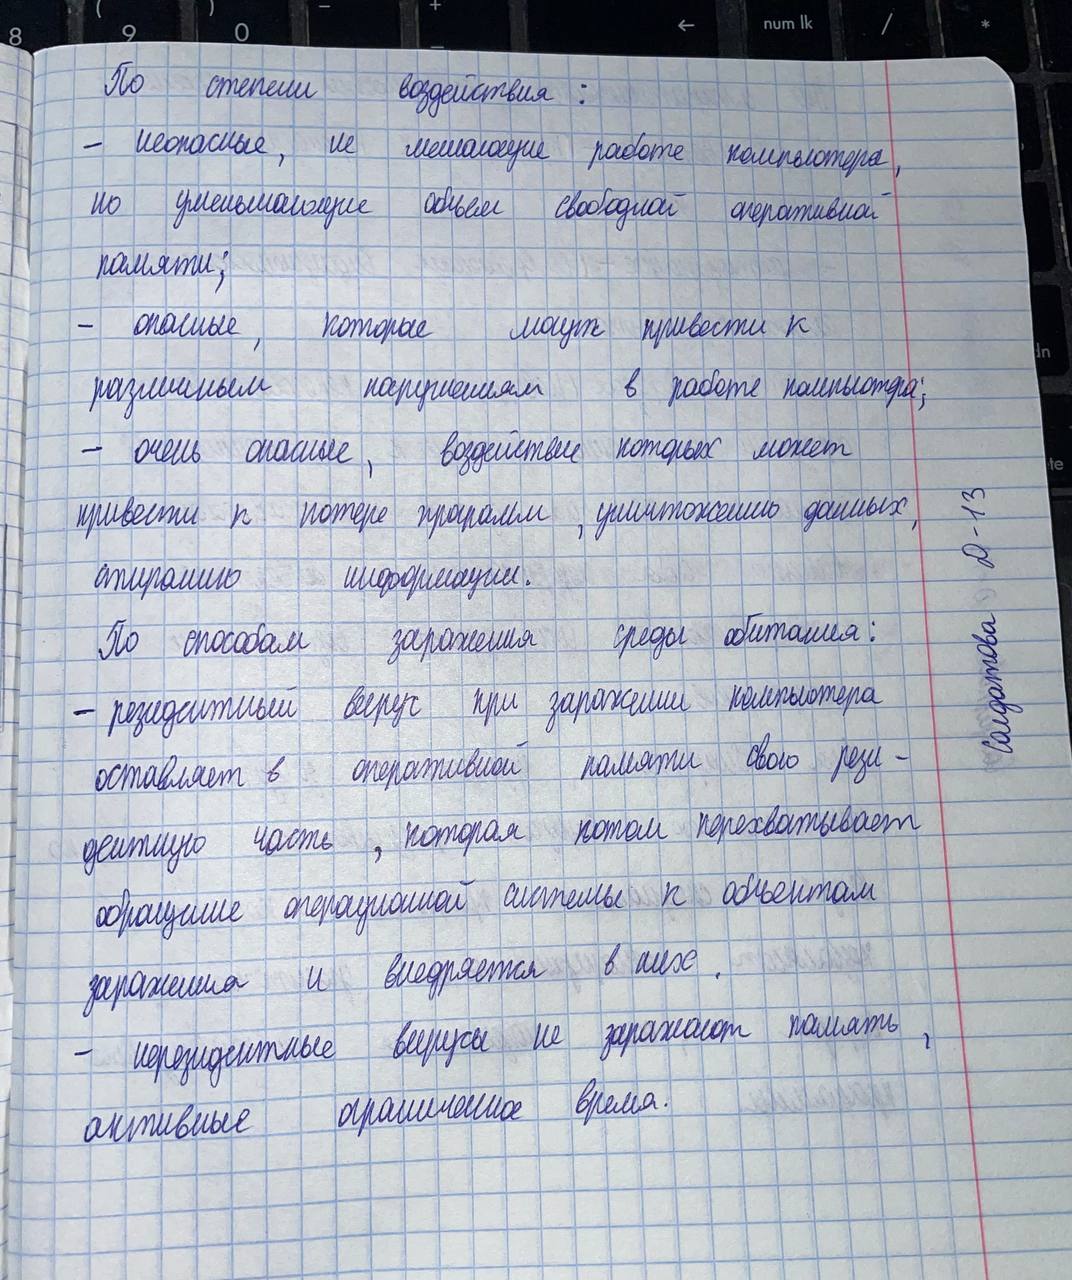 8
(
9
)
0
-
+
=
←
num lk
/
*
По степени воздействия:
- неопасные, не мешающие работе компьютера,
но уменьшающие объем свободной оперативной
памяти;
- опасные, которые могут привести к
различным нарушениям в работе компьютера;
- очень опасные, воздействие которых может
привести к потере программ, уничтожению данных,
стиранию информации.
По способам заражения среды обитания:
- резидентный вирус при заражении компьютера
оставляет в оперативной памяти свою рези-
дентную часть, которая потом перехватывает
обращение операционной системы к объектам
заражения и внедряется в них.
- нерезидентные вирусы не заражают память,
активные ограниченное время.
Солдатова Д-13
dn
te